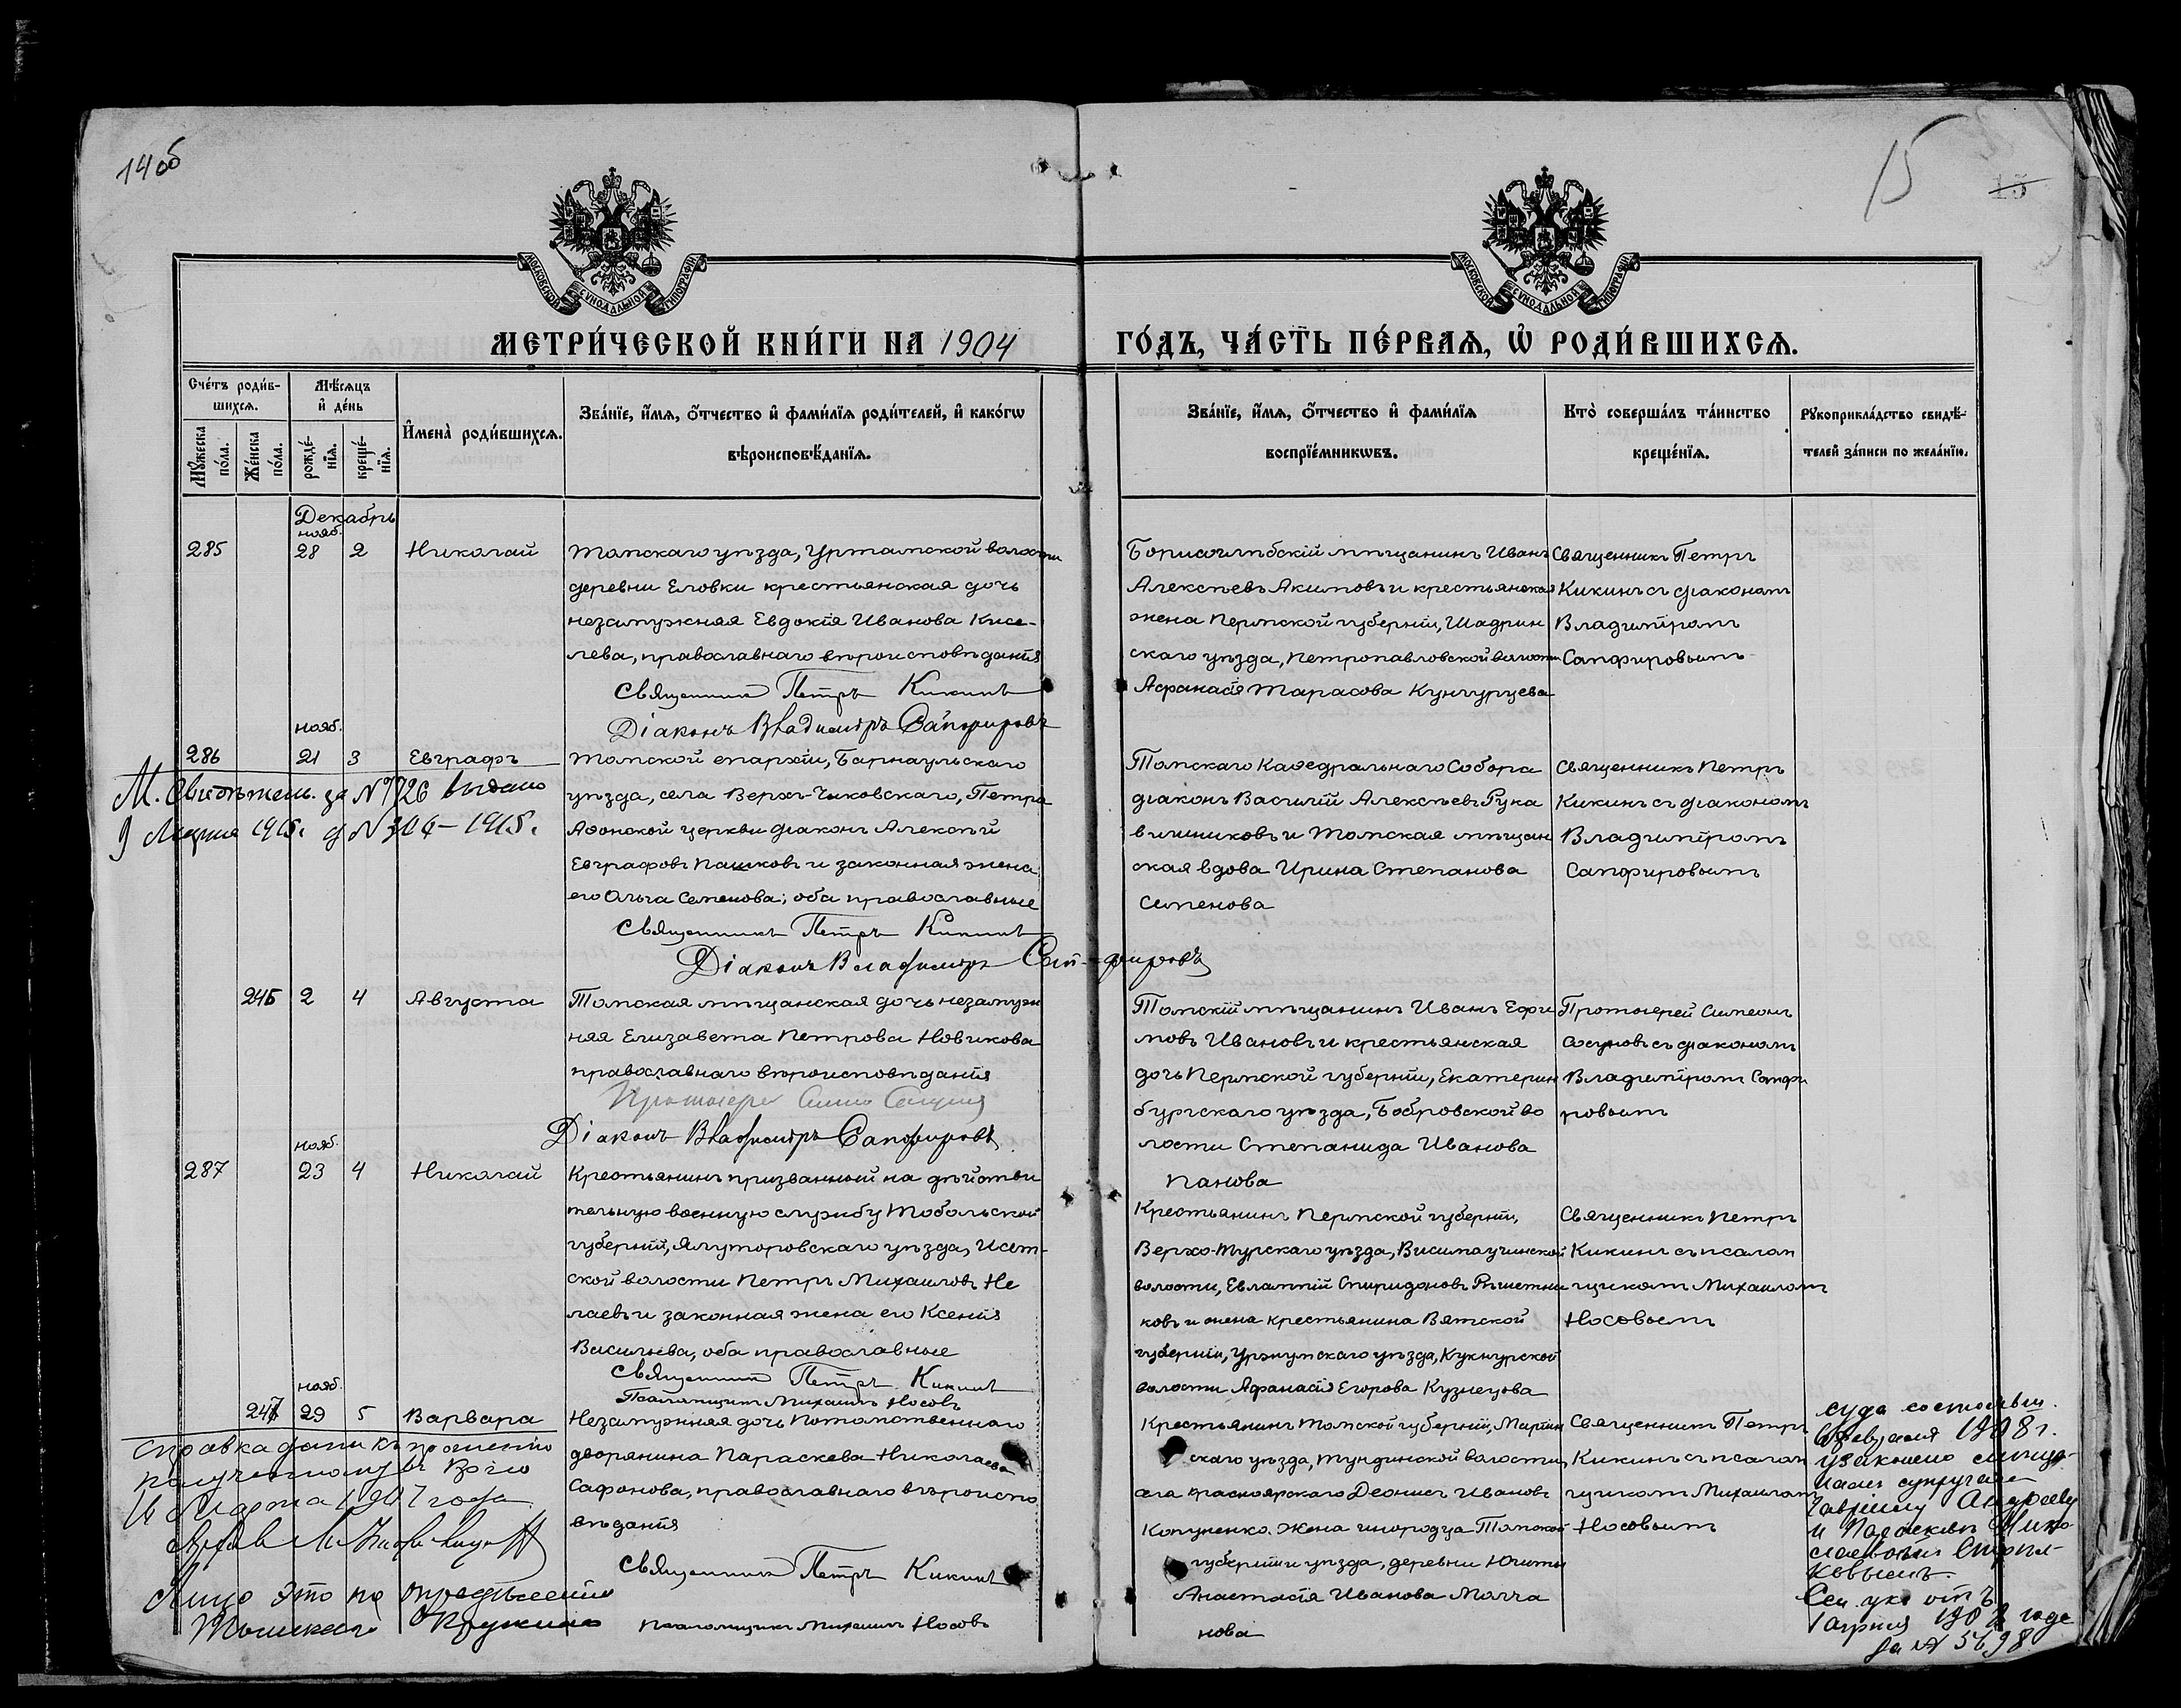 14об
15
15
МОСКОВСКОЙ СѴНОДАЛЬНОЙ ТИПОГРАФІИ
МОСКОВСКОЙ СѴНОДАЛЬНОЙ ТИПОГРАФІИ
МЕТРИ́ЧЕСКОЙ КНИ́ГИ НА 1904 ГО́ДЪ, ЧА́СТЬ ПЕ́РВАѦ, Ѡ҆ РОДИ́ВШИХСѦ.
Сче́тъ роди́в-
шихсѧ.
Мꙋ́жеска по́ла.
Же́нска по́ла.
Мѣ́сѧцъ
и҆ де́нь
рожде́-
нїѧ.
креще́-
нїѧ.
И҆мена̀ роди́вшихсѧ.
Зва́нїе, и҆́мѧ, ѻ҆́тчество и҆ фами́лїѧ роди́телей, и҆ како́гѡ
вѣроисповѣ́данїѧ.
Зва́нїе, и҆́мѧ, ѻ҆́тчество и҆ фами́лїѧ
воспрїе́мникѡвъ.
Кто̀ соверша́лъ та́инство
креще́нїѧ.
Рꙋкоприкла́дство свидѣ́-
телей за́писи по жела́нїю.
Декабрь
нояб.
285 28 2 Николай
Томскаго уѣзда, Уртамской волости
деревни Еловки крестьянская дочь
незамужняя Евдокія Иванова Кисе-
лева, православнаго вѣроисповѣданія
Священникъ Петръ Кикинъ
Діаконъ Владиміръ Сапфировъ
Борисоглѣбскій мѣщанинъ Иванъ
Алексѣевъ Акимовъ и крестьянская
жена Пермской губерніи, Шадрин
скаго уѣзда, Петропавловской волости
Афанасія Тарасова Кунгурцева
Священникъ Петръ
Кикинъ съ діакономъ
Владиміромъ
Сапфировымъ
нояб.
286 21 3 Евграфъ
М. Свидѣтель. за №726 выдано
9 Марта 1915г.
Томской епархіи, Барнаульскаго
уѣзда, села Верхъ-Чиковскаго, Петра
Афонской церкви діаконъ Алексѣй
Евграфовъ Пашковъ и законная жена
его Ольга Семенова; оба православные
Священникъ Петръ Кикинъ
Діаконъ Владиміръ Сапфировъ
Томскаго Каѳедральнаго Собора
діаконъ Василій Алексѣевъ Рука
вишниковъ и Томская мѣщан
ская вдова Ирина Степанова
Семенова
Священникъ Петръ
Кикинъ съ діакономъ
Владиміромъ
Сапфировымъ
246 2 4 Августа
Томская мѣщанская дочь незамуж
няя Елизавета Петрова Новикова
православнаго вѣроисповѣданія
Протоіерей
Діаконъ Владиміръ Сапфировъ
Томскій мѣщанинъ Иванъ Ефи
мовъ Ивановъ и крестьянская
дочь Пермской губерніи, Екатерин
бургскаго уѣзда, Бобровской во
лости Степанида Иванова
Панова
Протоіерей Симеонъ
Сосуновъ съ діакономъ
Владиміромъ Сапфи
ровымъ
нояб.
287 23 4 Николай
Крестьянинъ призванный на дѣйстви
тельную военную службу Тобольской
губерніи, Ялуторовскаго уѣзда, Исет-
ской волости Петръ Михаиловъ Не
лаевъ и законная жена его Ксенія
Васильева, оба православные
Священникъ Петръ Кикинъ
Псаломщикъ Михаилъ Носовъ
Крестьянинъ Пермской губерніи,
Верхо-Турскаго уѣзда,
волости, Евлампій Спиридоновъ Рѣшетни
ковъ и жена крестьянина Вятской
губерніи, Уржумскаго уѣзда, Кукнурской
волости Афанасія Егорова Кузнецова
Священникъ Петръ
Кикинъ съ псалом
щикомъ Михаиломъ
Носовымъ
нояб.
247 29 5 Варвара
Незамужняя дочь потомственнаго
дворянина Параскева Николаева
Сафонова, православнаго вѣроиспо
вѣданія
Священникъ Петръ Кикинъ
Псаломщикъ Михаилъ Носовъ
Крестьянинъ Томской губерніи, Маріин
скаго уѣзда, Тундинской волости,
села Красноярскаго Деонисъ Ивановъ
Копуненко. Жена инородца Томской
губерніи и уѣзда, деревни
Анастасія Иванова Молча
нова
Священникъ Петръ
Кикинъ съ псалом
щикомъ Михаиломъ
Носовымъ
Справка дана къ прошенію
Марта 1907 года
Лицо это по опредѣленію
Томскаго Окружнаго
суда состоявш.
февраля 1908 г.
узаконено
супругами
Гавріилу Андрееву
и Параскевѣ Нико
лаевой
указъ отъ
1 апрѣля 1908 года
за № 5698